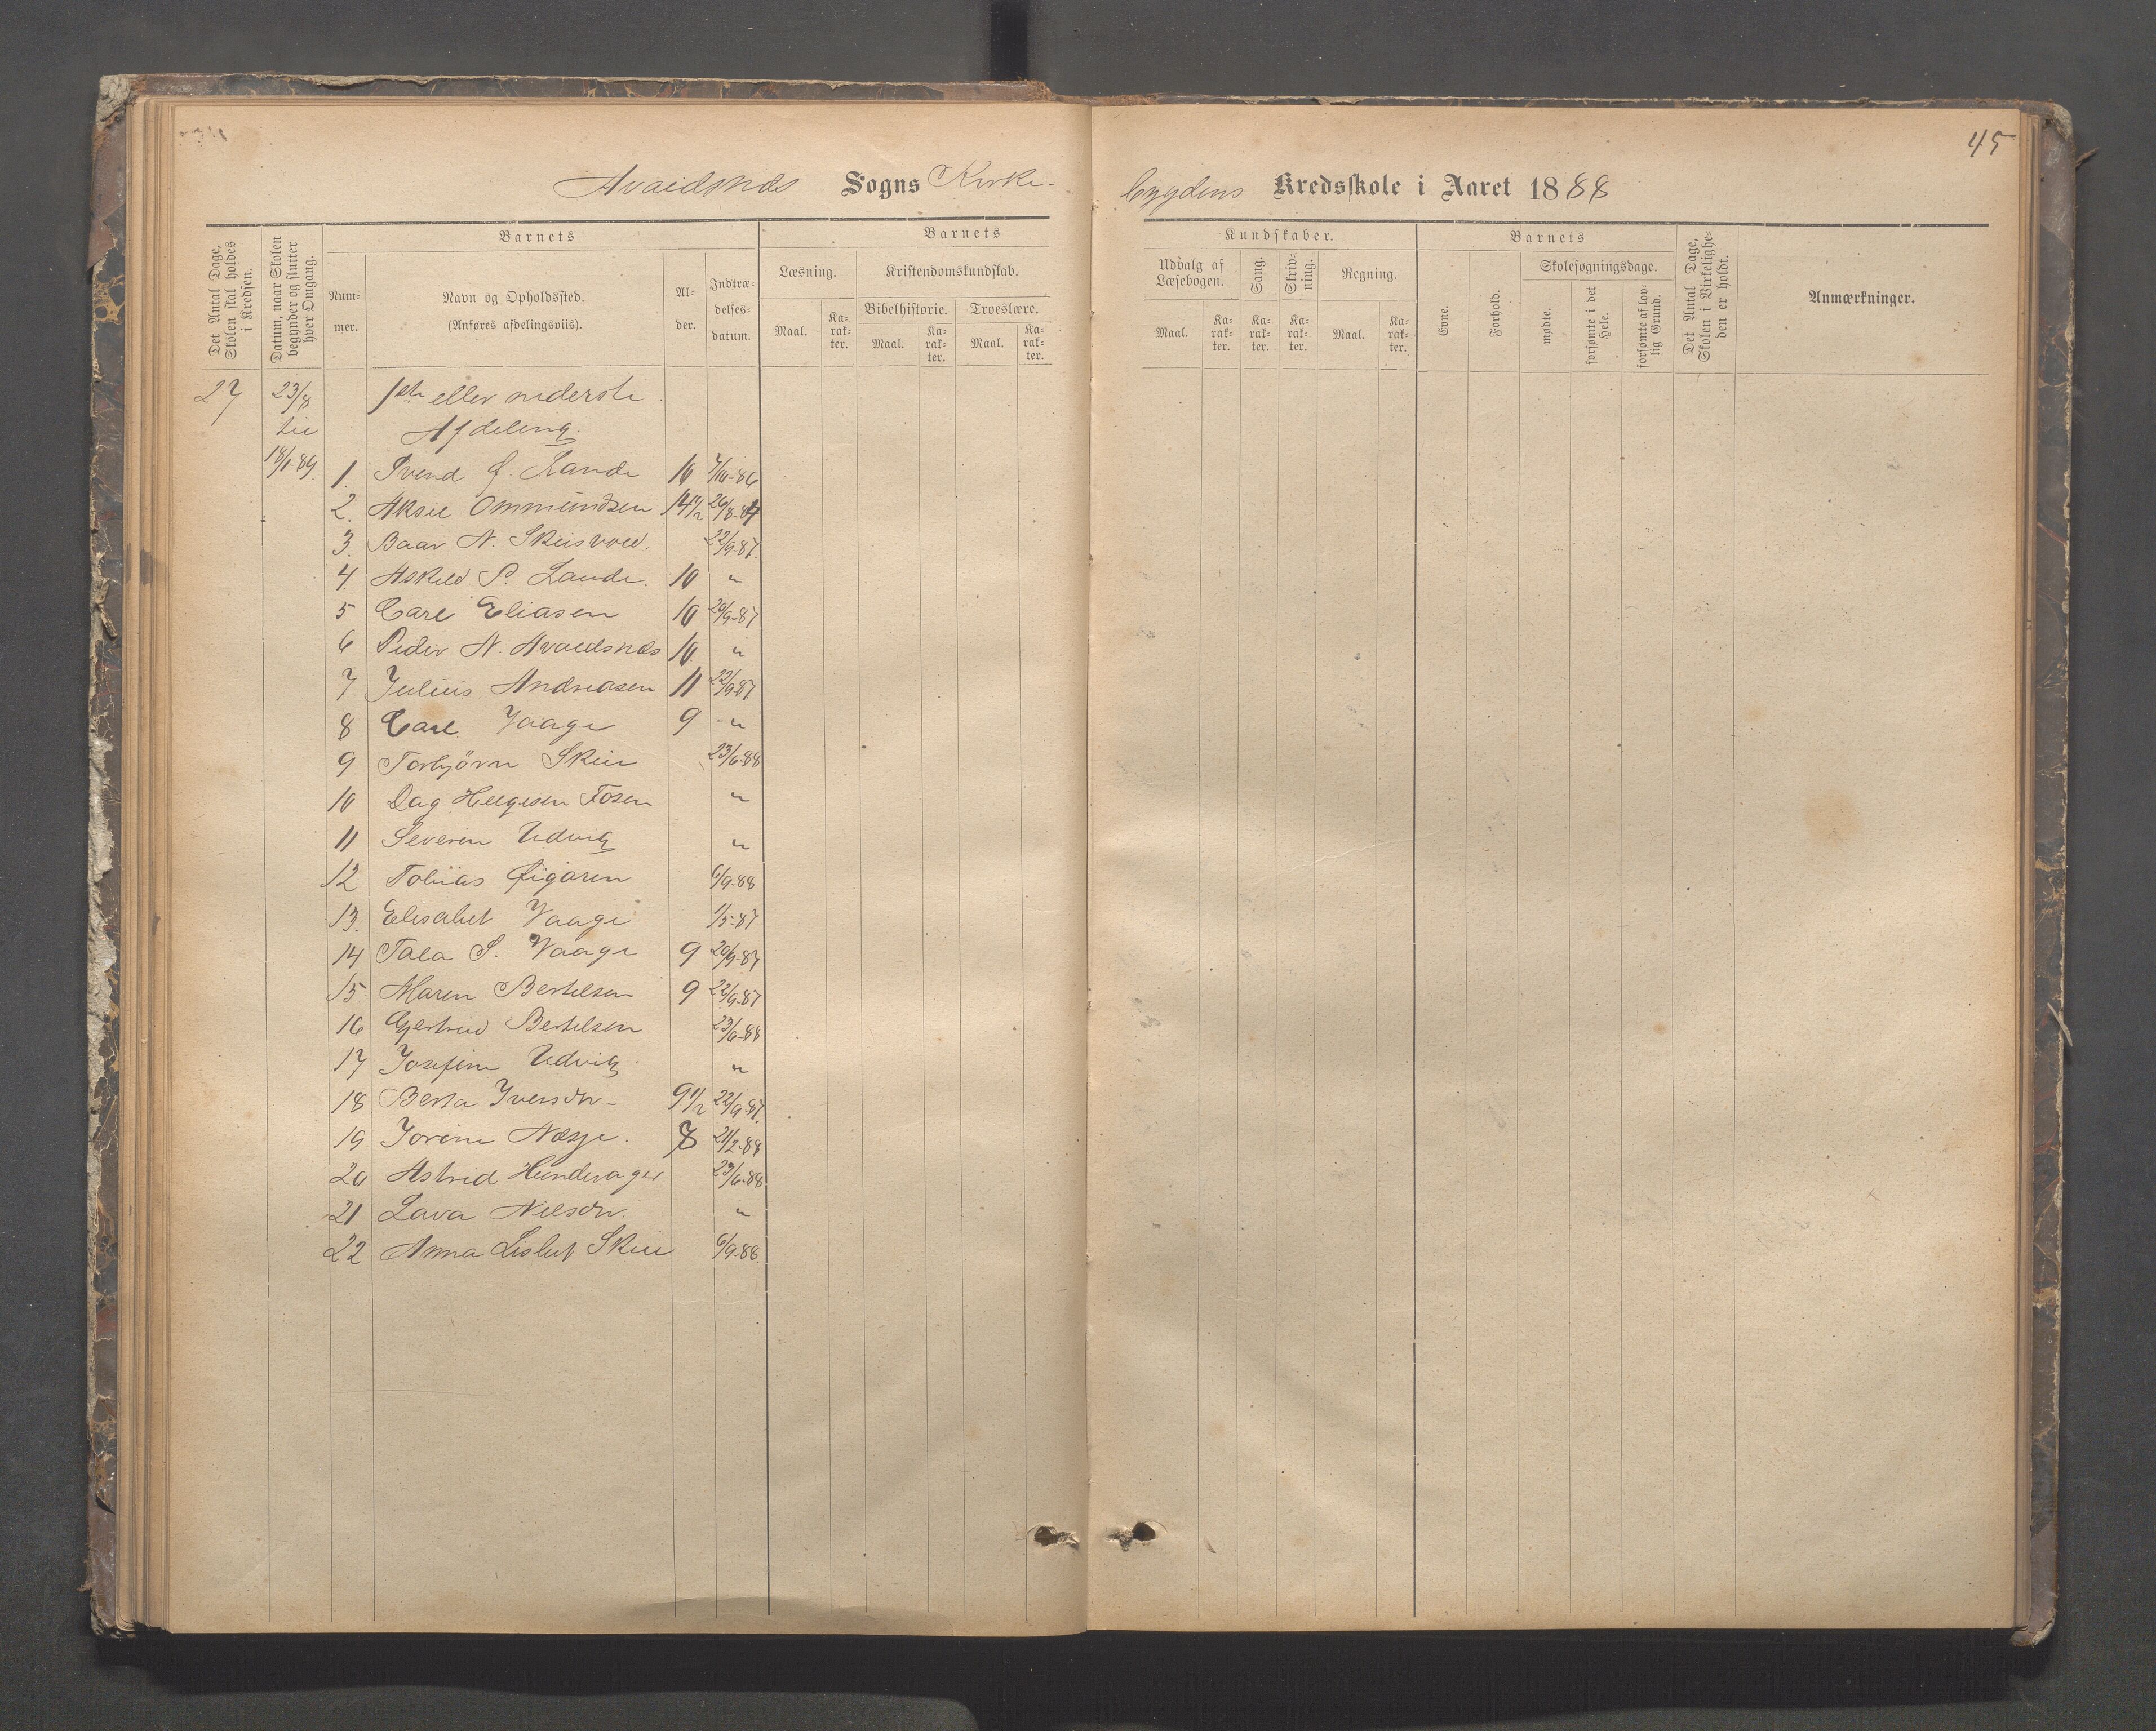 45
Avaldsnæs Sogns Kirke-
bygdens Kredsskole i Aaret 1888
Det Antal Dage, Skolen skal holdes i Kredsen.
Datum, naar Skolen begynder og slutter hver Omgang.
Barnets
Num-mer.
Navn og Opholdssted.
(Anføres afdelingsviis).
Al-der.
Indtræ-delses-datum.
Barnets
Læsning.
Maal.
Ka-rak-ter.
Kristendomskundskab.
Bibelhistorie.
Maal.
Ka-rak-ter.
Troeslære.
Maal.
Ka-rak-ter.
Kundskaber.
Udvalg af Læsebogen.
Maal.
Ka-rak-ter.
Sang.
Ka-rak-ter.
Skriv-ning.
Ka-rak-ter.
Regning.
Maal.
Ka-rak-ter.
Barnets
Evne.
Forhold.
Skolesøgningsdage.
mødte.
forsømte i det Hele.
forsømte af lov-lig Grund.
Det Antal Dage, Skolen i Virkelighe-den er holdt.
Anmærkninger.
27 23/8 1ste eller nederste
til Afdeling.
18/1-89.
1. Svend J. Lande 10 7/10-86
2. Aksel Ommundsen 14 1/2 26/8-84
3. Baar N. Skeisvold. 22/9-87
4 Askild P. Lande. 10 "
5 Carl Eliasen 10 20/9-87
6 Peder N. Avaldsnæs 10 "
7 Julius Andreasen 11 22/9-87
8 Carl Vaage 9 "
9 Torbjørn Skeie 23/6-88
10 Dag Helgesen Fosen "
11 Severin Udvik "
12 Tobias Øigaren 6/9-88
13. Elisabet Vaage 1/5-87
14 Tala S. Vaage 9 20/9-87
15. Maren Bertelsen 9 22/9-87
16 Gjertrud Bertelsen 23/6-88
17 Josefine Udvik "
18 Berta Iversdr- 9 1/2 22/9-87.
19 Jorine Næsje. 8 21/2-88
20 Astrid Hundvager 23/6-88
21 Lava Nilsdr. "
22 Anna Lisbet Skeie 6/9-88